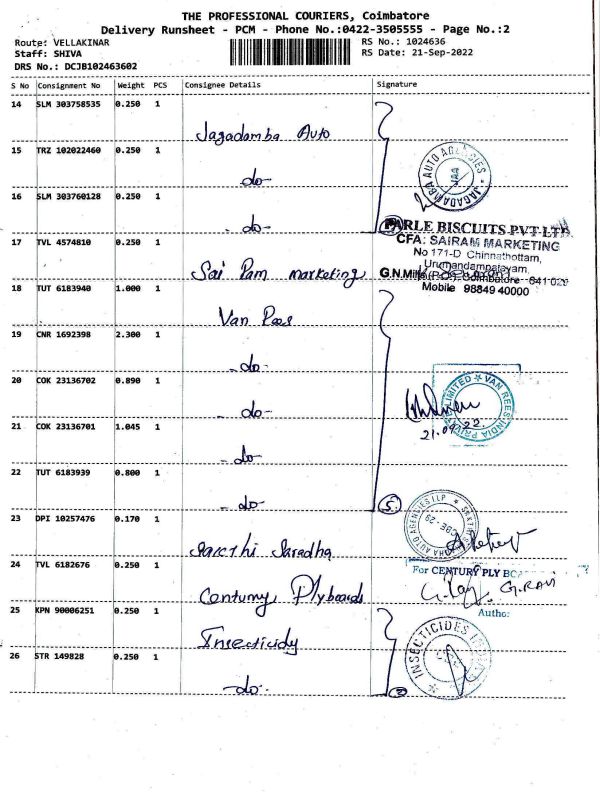 THE PROFESSIONAL COURIERS, Coimbatore
Delivery Runsheet - PCM - Phone No.:0422-3505555 - Page No.:2
Route: VELLAKINAR
RS No.: 1024636
Staff: SHIVA
RS Date: 21-Sep-2022
DRS No.: DCJB102463602
S No Consignment No Weight PCS Consignee Details Signature
14 SLM 303758535 0.250 1
Jagadamba Auto
15 TRZ 102022460 0.250 1
JAGADAMBA AUTO AGENCIES
-do-
16 SLM 303760128 0.250 1
-do-
PARLE BISCUITS PVT LTD
17 TVL 4574810 0.250 1
CFA: SAIRAM MARKETING
No 171-D Chinnathottam,
Urumandampalayam,
Sai Ram marketing
G.N.Mills (P.O), Coimbatore 641 029
18 TUT 6183940 1.000 1
Mobile 98849 40000
Van Rees
19 CNR 1692398 2.300 1
-do-
20 COK 23136702 0.890 1
VAN REES INDIA PRIVATE LIMITED
-do-
21 COK 23136701 1.045 1
21.09.22.
-do-
22 TUT 6183939 0.800 1
-do-
5
23 DPI 10257476 0.170 1
AUTO AGENCIES LLP
CBE-29
Sarcthi Saradha
24 TVL 6182676 0.250 1
For CENTURY PLY BO
Century Plyboards
G.RAVI
25 KPN 90006251 0.250 1
Autho:
Insecticidy
INSECTICIDES INDIA
26 STR 149828 0.250 1
-do-
2